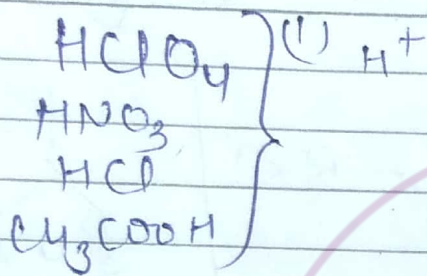 HClO4 } (1) H+
HNO3
HCl
CH3COOH